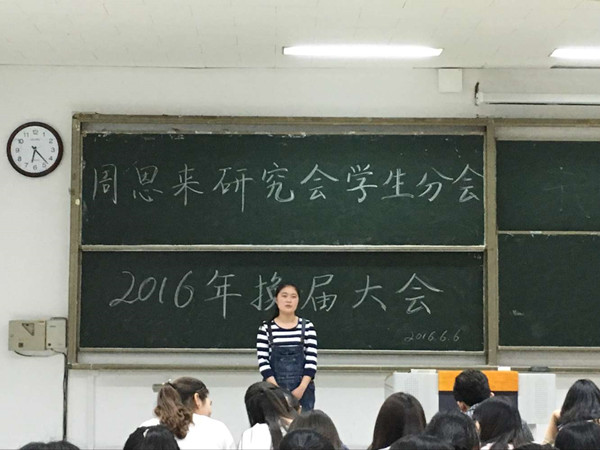 周恩来研究会学生分会
2016年换届大会
2016.6.6